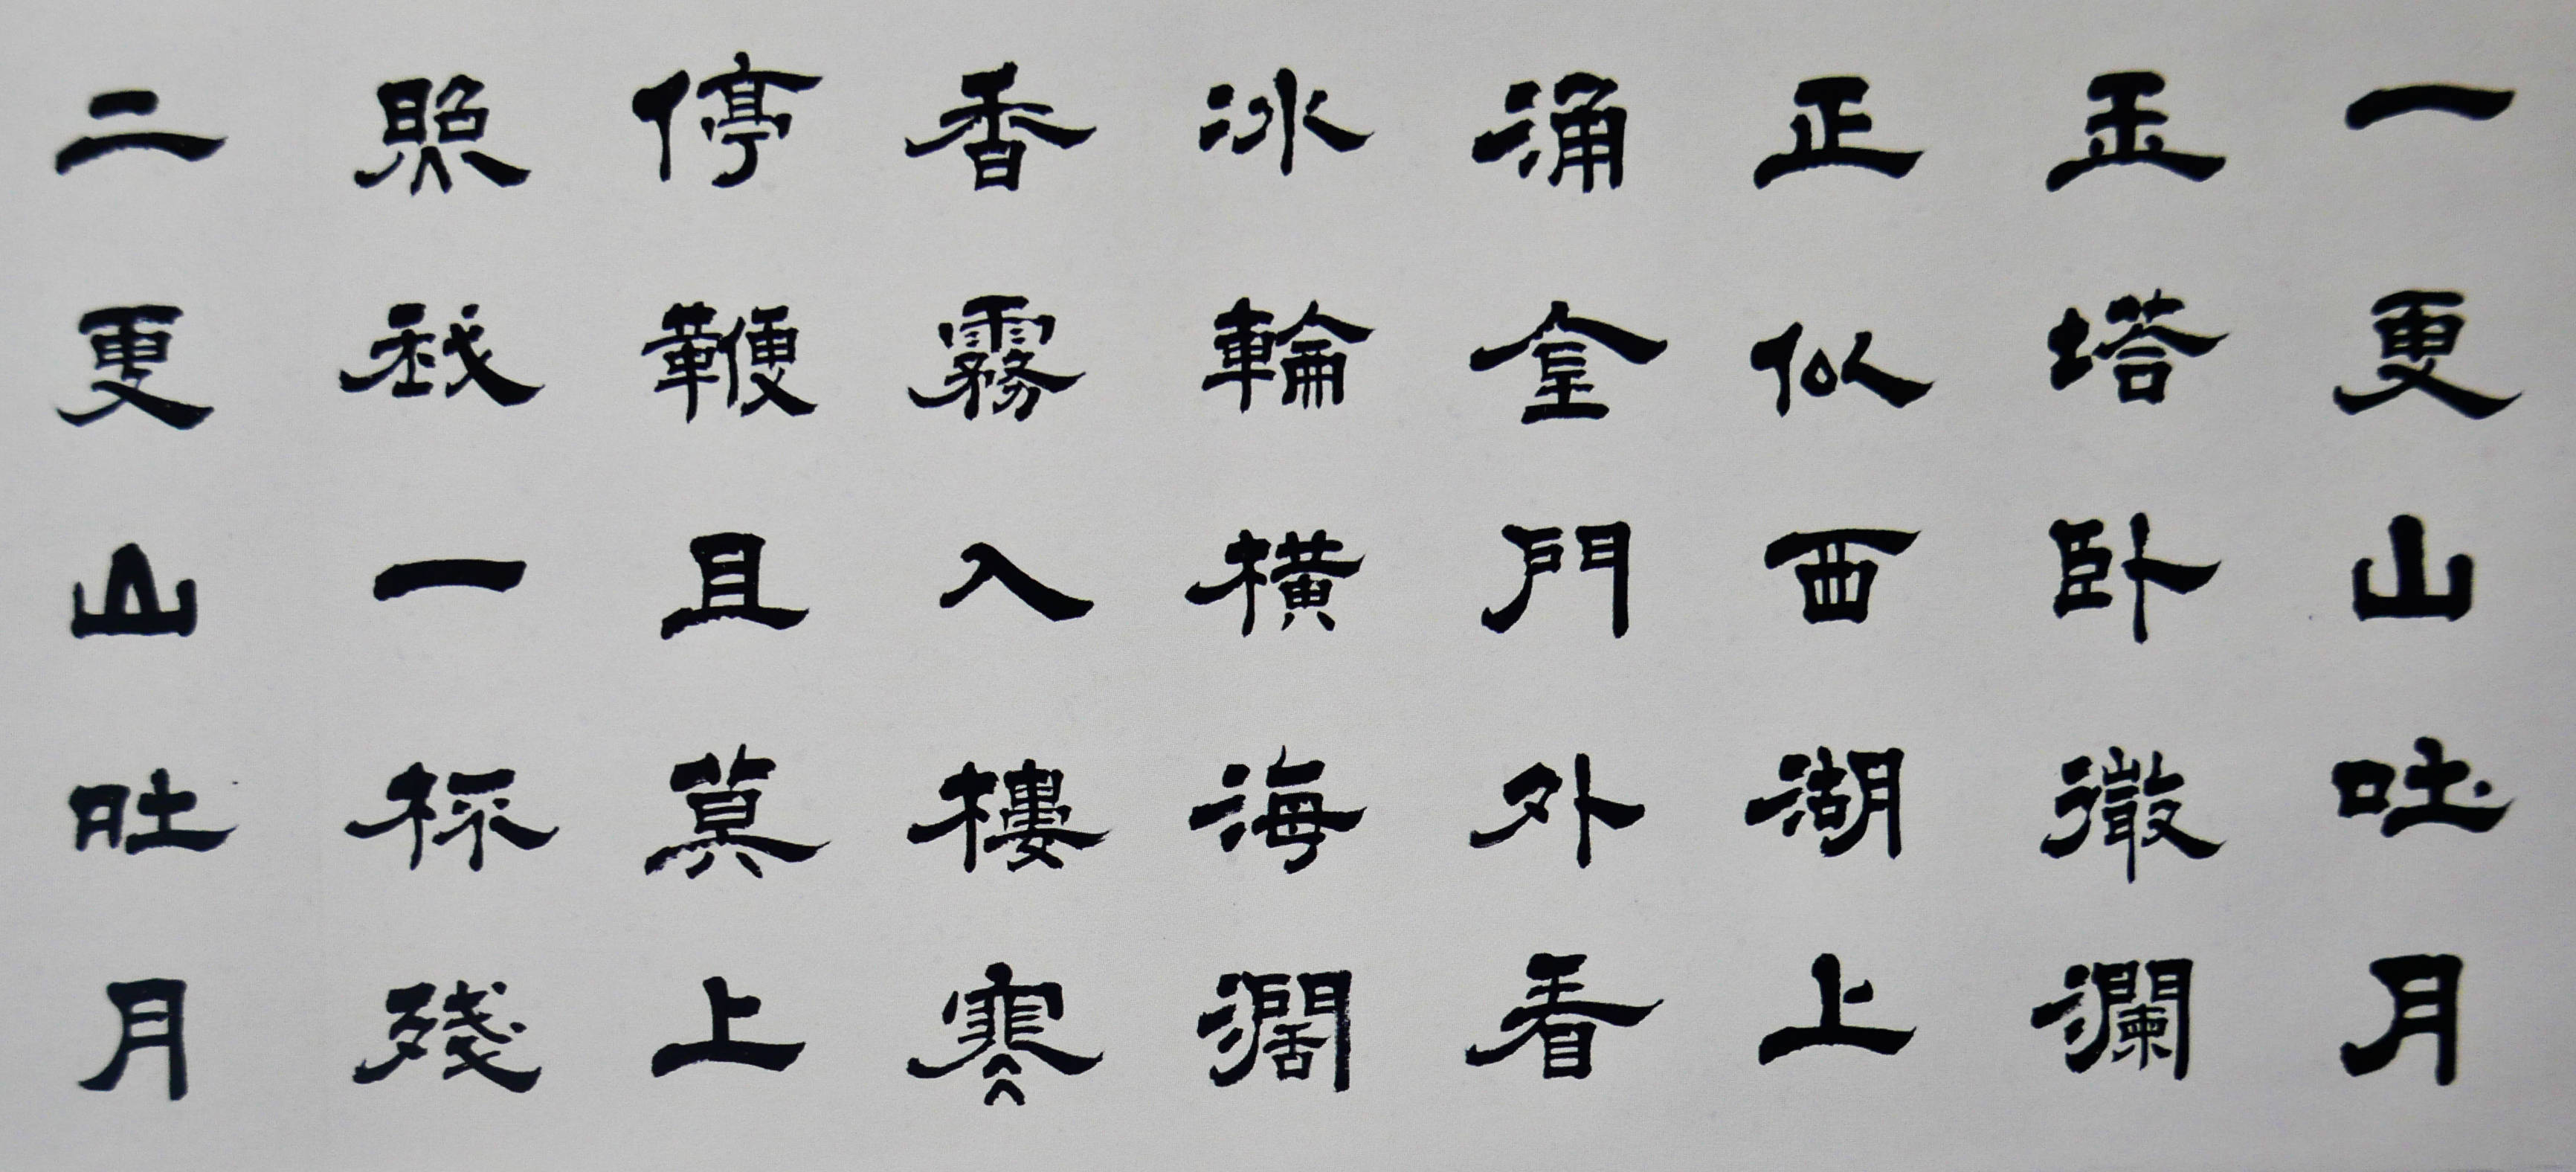 一更山吐月
玉塔卧微瀾
正似西湖上
涌金門外看
冰輪橫海濶
香霧入樓寒
停鞭且莫上
照我一杯殘
二更山吐月